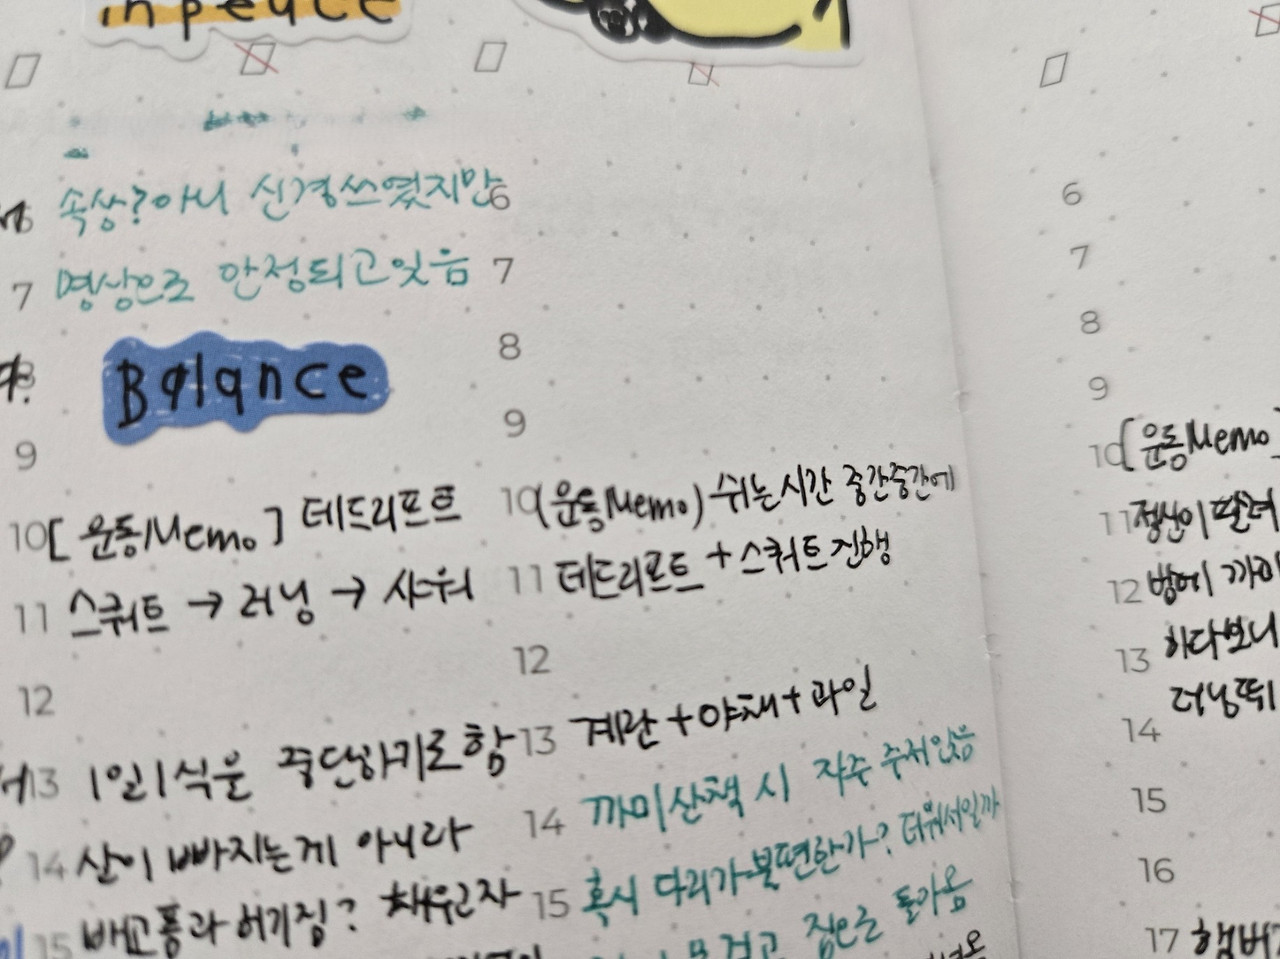 in peace
속상?아니 신경쓰였지만
명상으로 안정되고있음
Balance
[운동Memo] 데드리프트
스쿼트 → 러닝 → 샤워
1일1식을 중단하기로함
살이 빠지는게 아니라
배고픔과 허기짐? 채우고자
6
7
8
9
10
11
12
13
14
15
6
7
8
9
10 (운동Memo) 쉬는시간 중간중간에
11 데드리프트 + 스쿼트 진행
12
13 계란 + 야채 + 과일
14 까미산책 시 자주 주저앉음
15 혹시 다리가 불편한가? 더워서일까
걷고 집으로 돌아옴
6
7
8
9
10 [운동Memo]
11
12
13 하다보니
14 러닝뛰
15
16
17 햄버